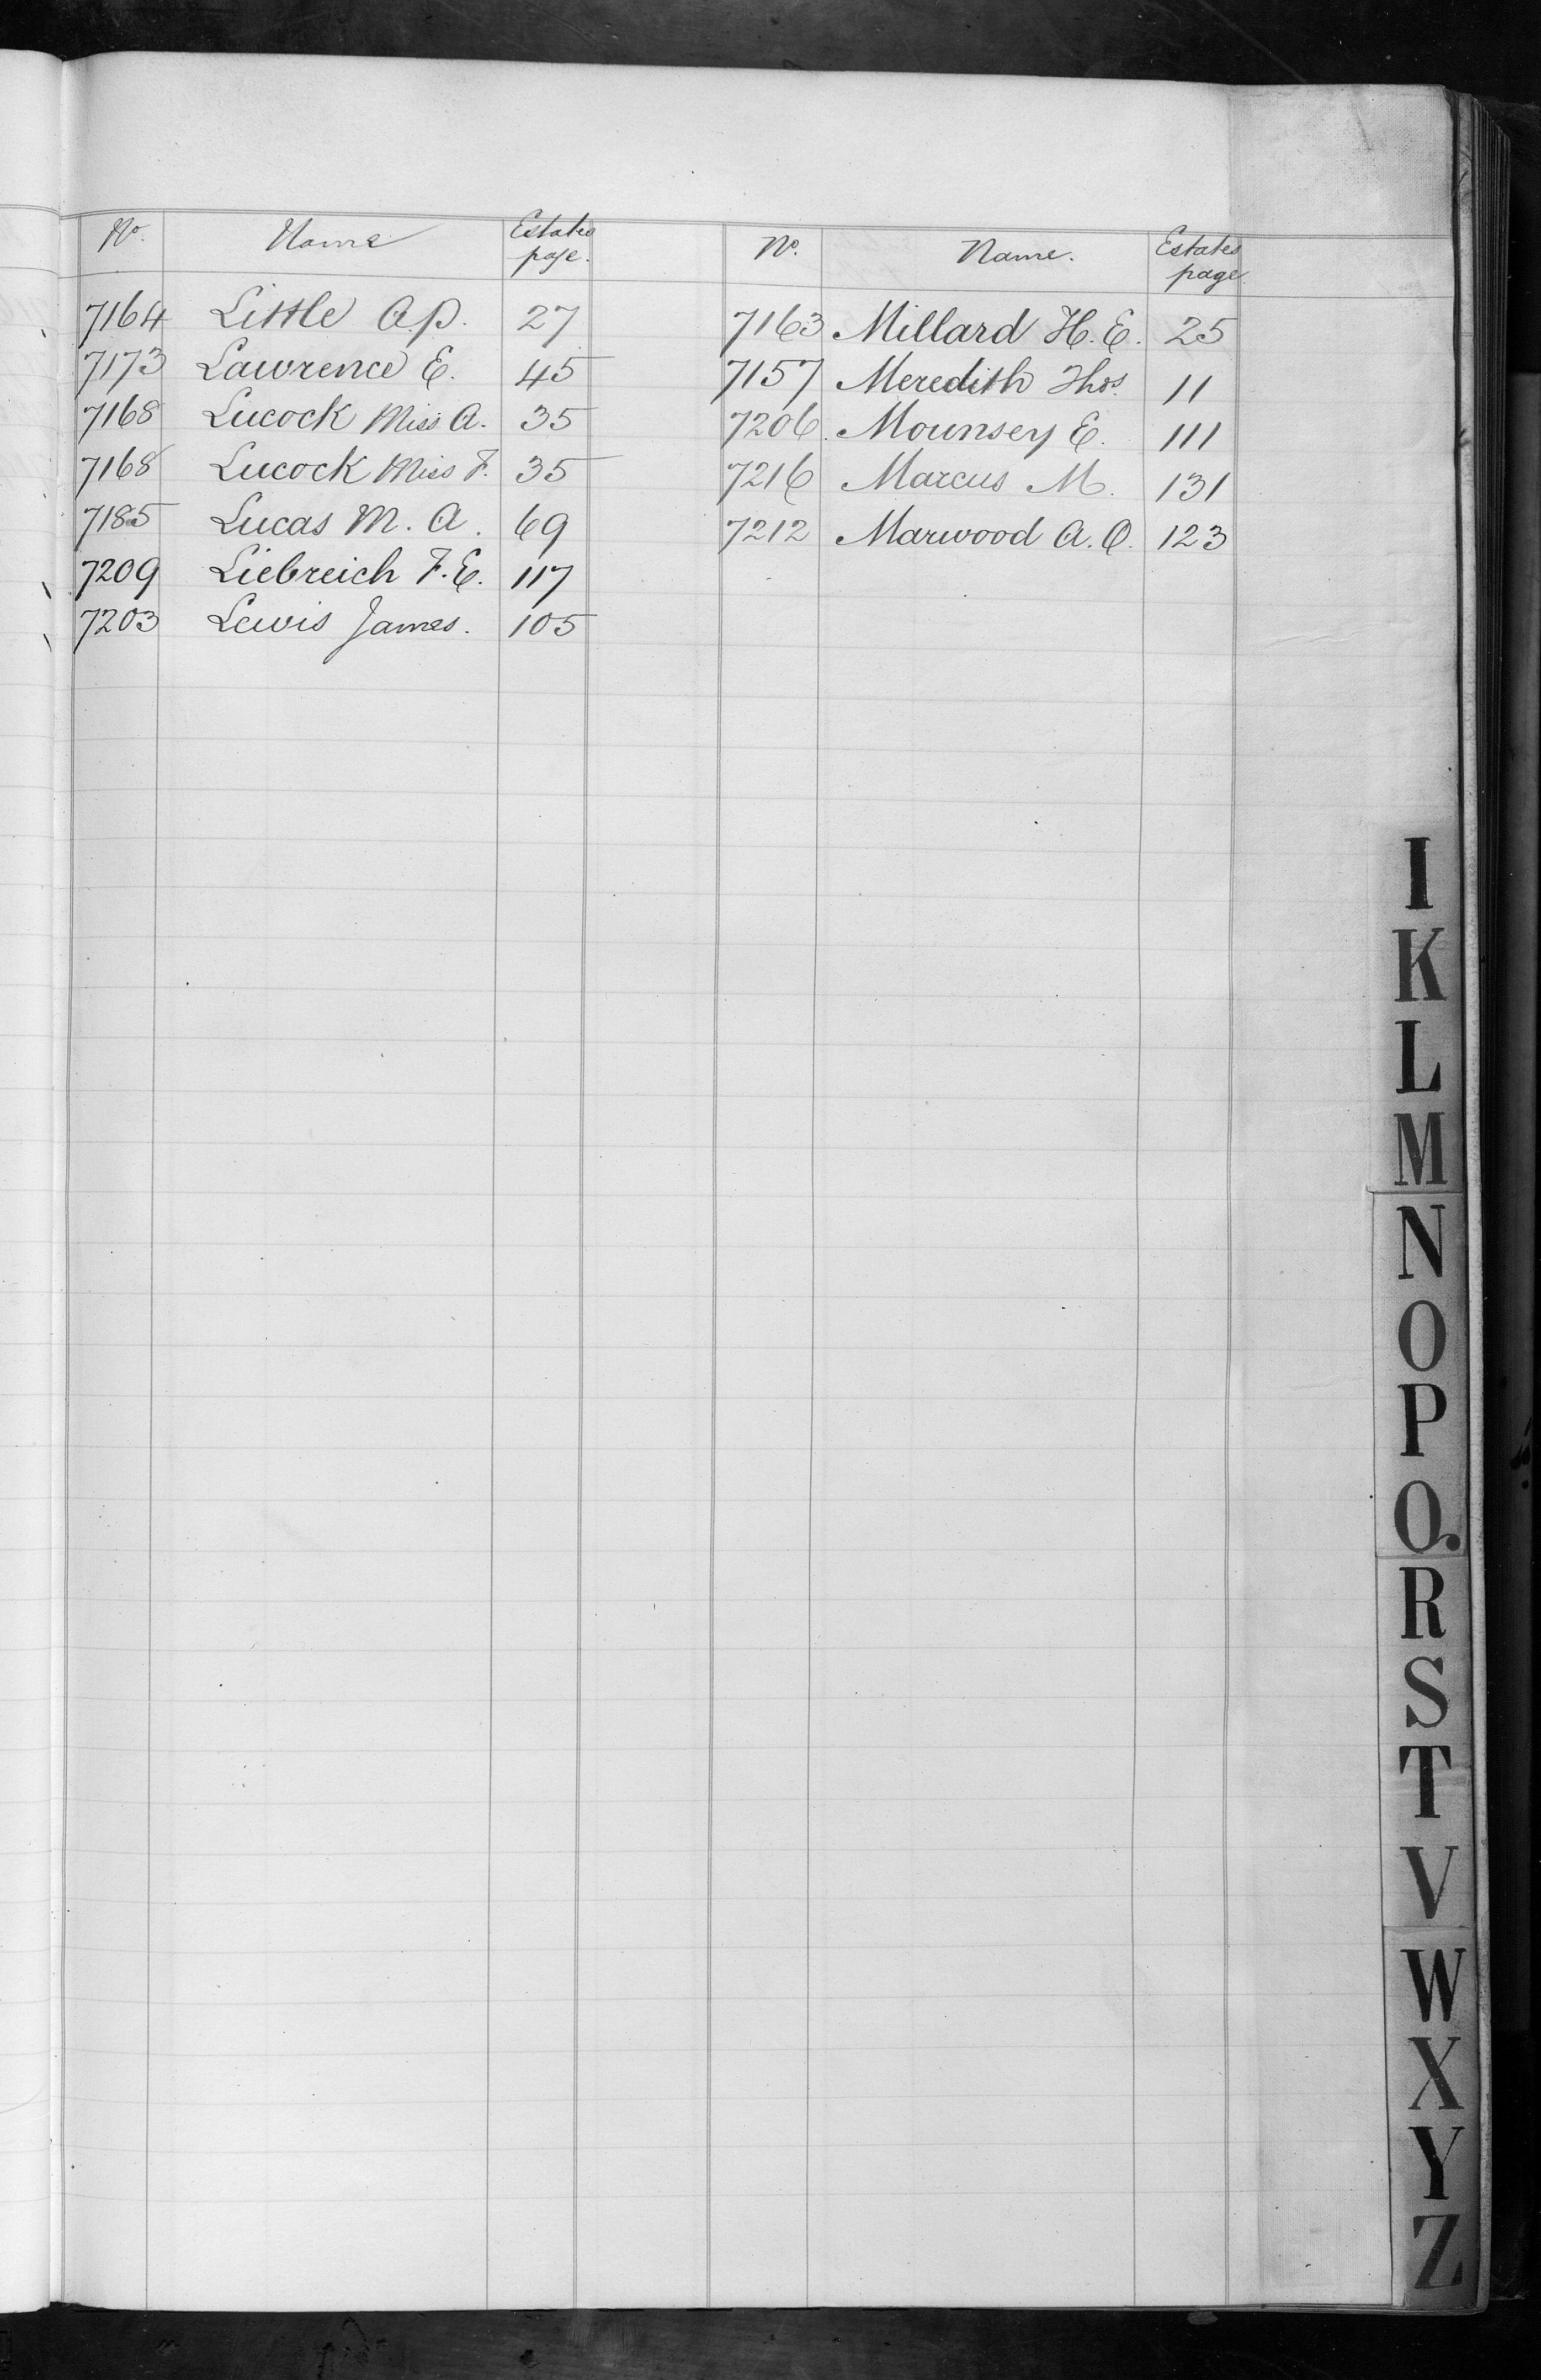 No. Name Estates page.
7164 Little A.P. 27
7173 Lawrence E. 45
7168 Lucock Miss A. 35
7168 Lucock Miss F. 35
7185 Lucas M. A. 69
7209 Liebreich F.E. 117
7203 Lewis James. 105
No. Name. Estates page.
7163 Millard H. E. 25
7157 Meredith Thos. 11
7206. Mounsey E. 111
7216 Marcus M. 131
7212 Marwood A. O. 123
I
K
L
M
N
O
P
Q.
R
S
T
V
W
X
Y
Z